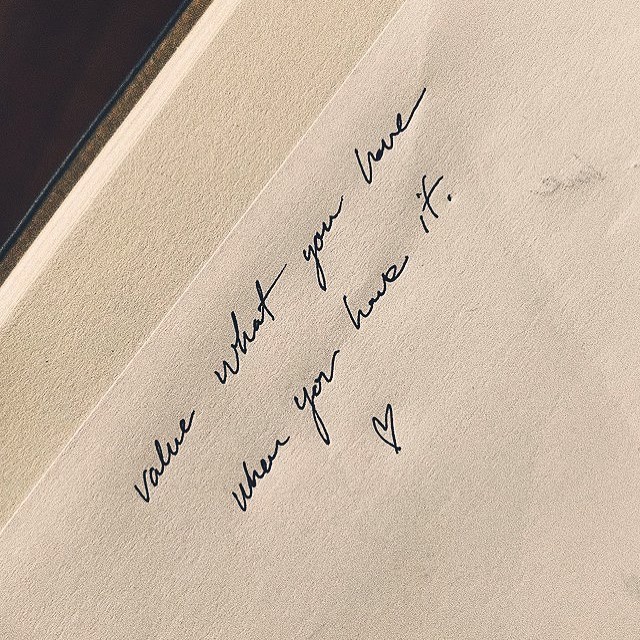 value what you have
when you have it.